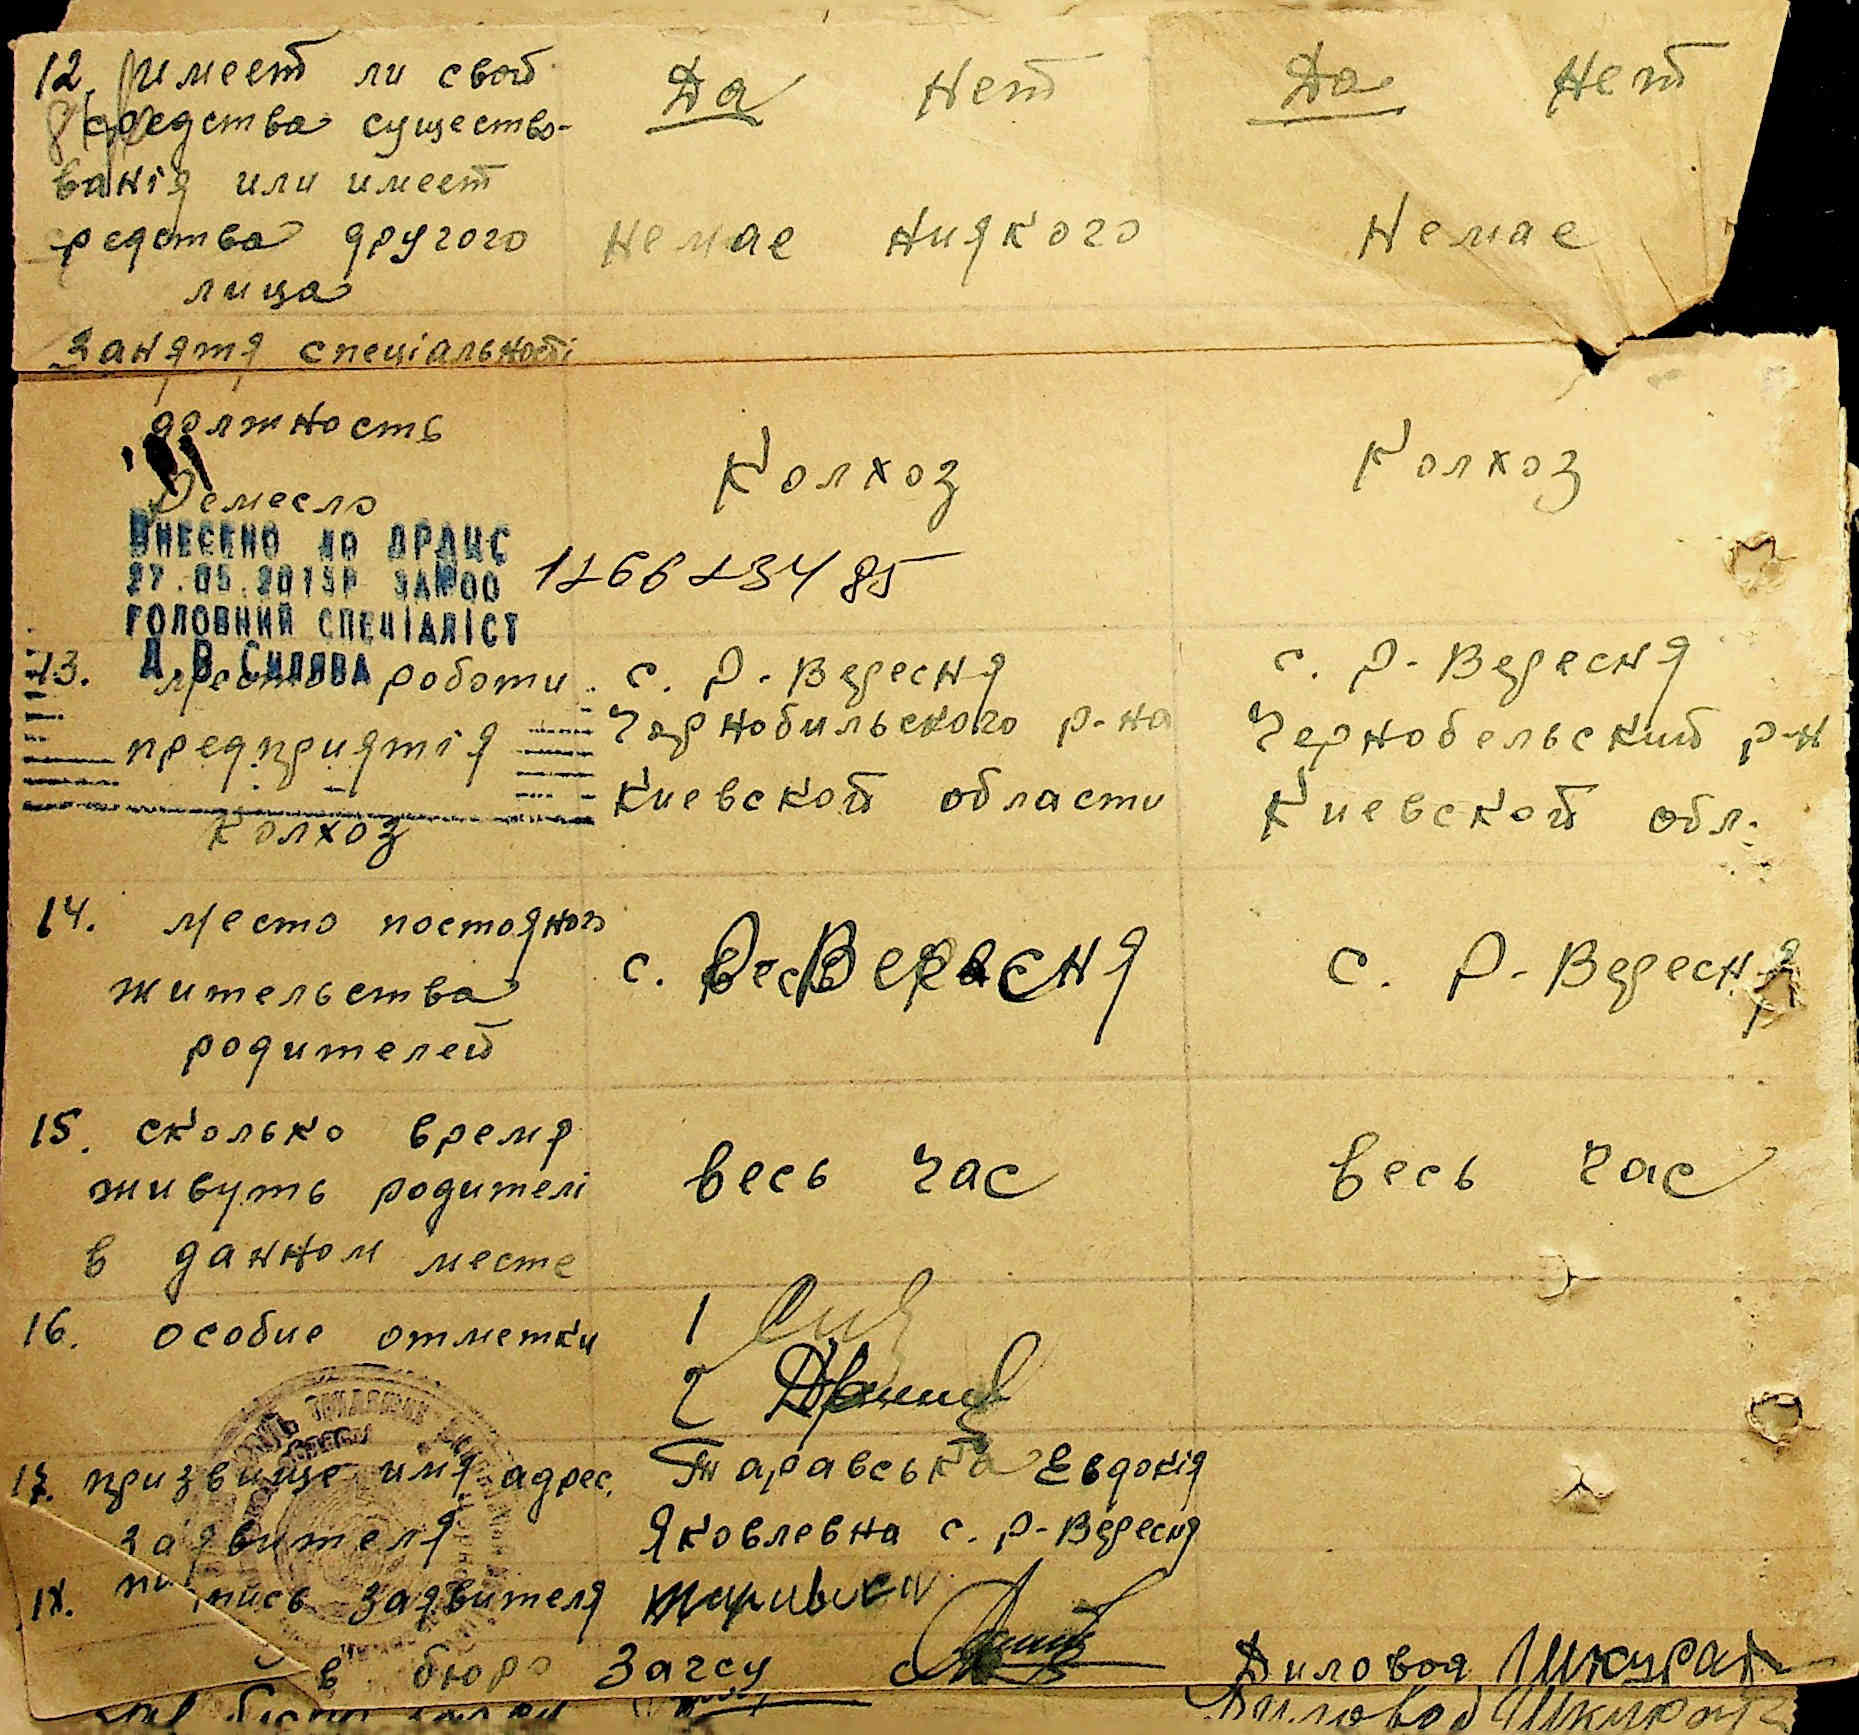 12. имеет ли свой Да Нет Да Нет
средства существо-
ванія или имеет
средства другого Немае Ниякого Немае
лица
Заняття спеціальності
должность
Колхоз Колхоз
Ремесло
ВНЕСЕНО ДО ДРАЦС
27.05.201
ГОЛОВНИЙ СПЕЦІАЛІСТ
Д.В.
13. место роботи с. Р-Вересня с. Р-Вересня
предприятія Чернобильского р-на Чернобельский р-н
Киевской области Киевской обл.
Колхоз
14. Место постояного с. Вересня с. Р-Вересня
жительства
родителей
15. сколько время
живуть родителі весь час весь час
в данном месте
16. особие отметки 1
2
17. призвище имя адрес. Таравська Евдокія
заявителя Яковлевна с. Р-Вересня
18. заявителя
в бюро Загсу Диловод Шкурат